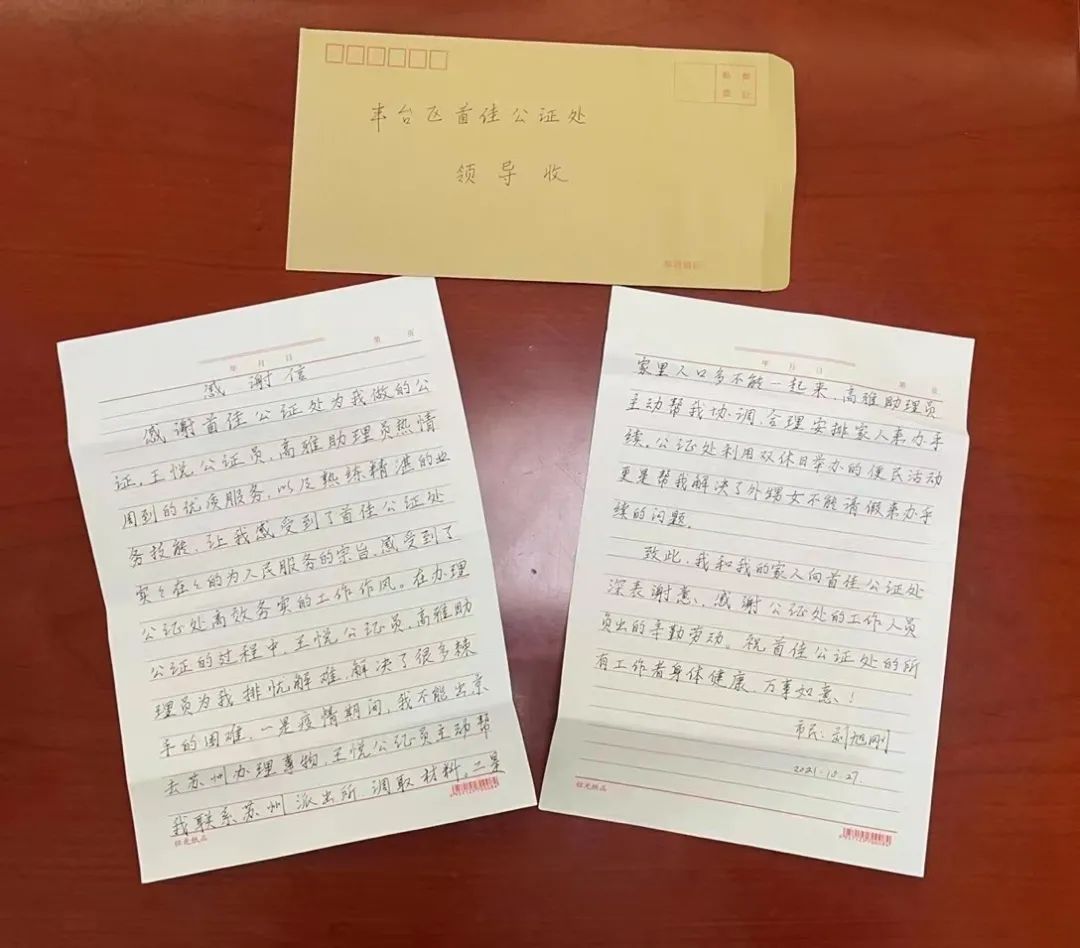 贴 邮
票 处
丰台区首佳公证处
领导收
第 页
年 月 日
感谢信
感谢首佳公证处为我做的公
证,王悦公证员,高雅助理员热情
周到的优质服务,以及熟练精湛的业
务技能,让我感受到了首佳公证处
实々在々的为人民服务的宗旨,感受到了
公证处高效务实的工作作风。在办理
公证的过程中,王悦公证员,高雅助
理员为我排忧解难,解决了很多棘
手的困难,一是疫情期间,我不能出京
去苏州办理事物,王悦公证员主动帮
我联系苏州派出所,调取材料。二是
年 月 日
第 页
家里人口多不能一起来,高雅助理员
主动帮我协调,合理安排家人来办手
续。公证处利用双休日举办的便民活动
更是帮我解决了外甥女不能请假来办手
续的问题。
致此,我和我的家人向首佳公证处
深表谢意,感谢公证处的工作人员
负出的辛勤劳动。祝首佳公证处的所
有工作者身体健康,万事如意!
市民:刘旭刚
2021.10.27